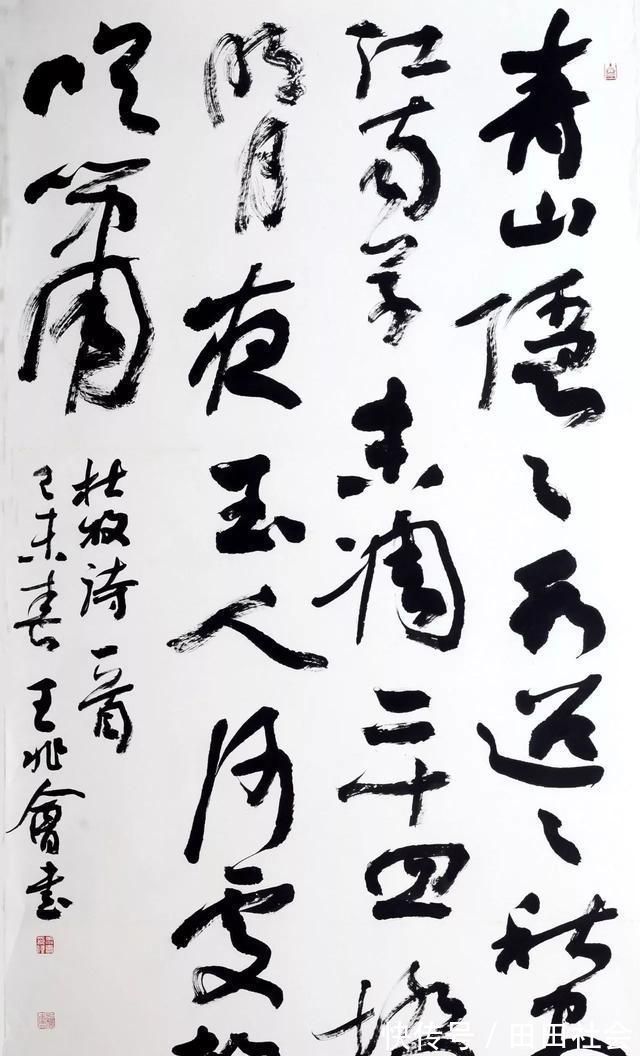 青山隱〻水迢〻秋尽
江南草未凋二十四橋
明月夜玉人何處教
吹簫
杜牧詩一首
己未春王兆會書
快传号／田田社会